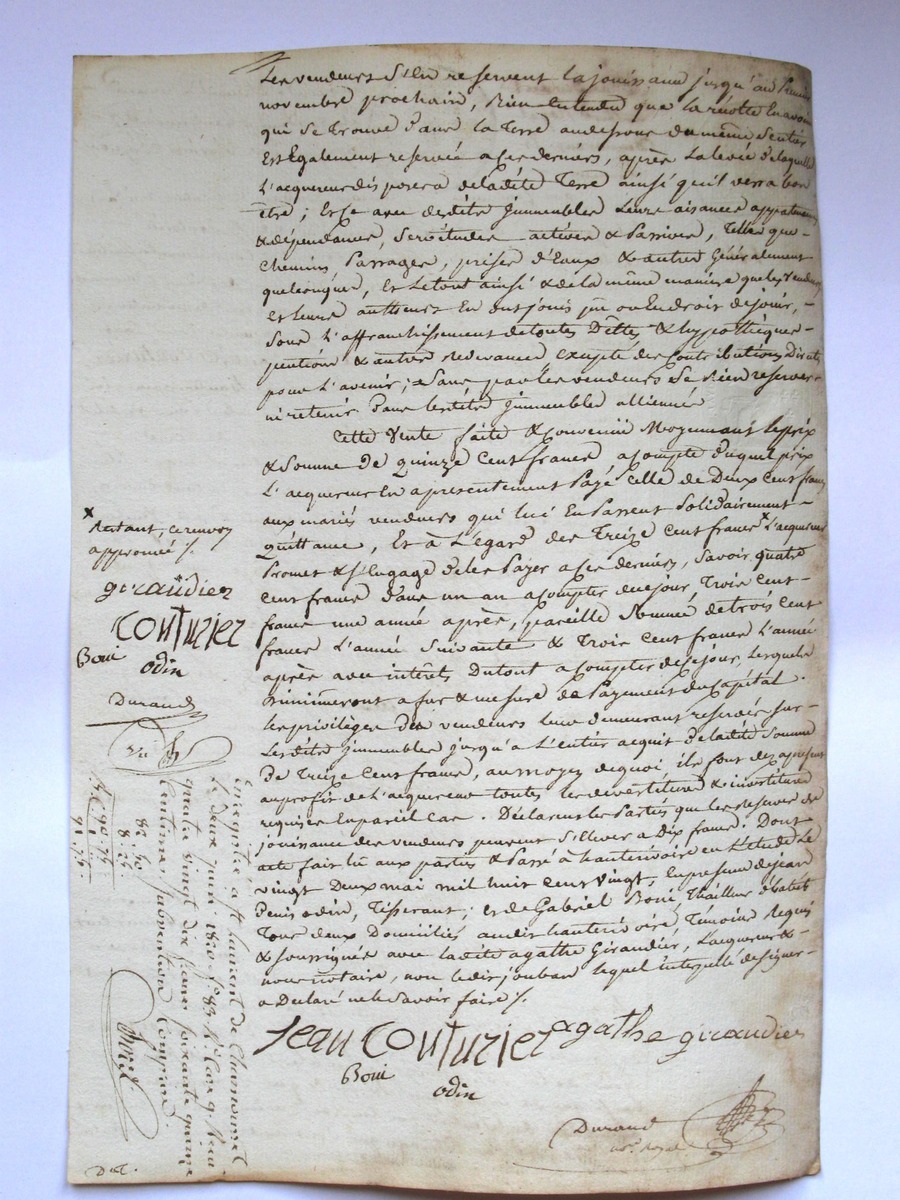 Les vendeurs S'En reservent la jouissance jusqu'au Premier
novembre prochain, Bien Entendu que la récolte En avoine
qui se Trouve Dans la Terre audessous du même Sentier
Est Également reservée a Ces derniers, après La levée de laquelle
L'acquereur disposera de ladite Terre ainsi qu'il verra bon
être ; Et Ce avec desdits Immeubles Leurs aisances appartenances
& dépendances, Servitudes actives & Passives, Telles que
Chemins, Passages, prises d'Eaux & autres Généralement
quelconques, Et Le tout ainsi & de la même manière que les vendeurs
Et leurs autheurs En ont joui ou En droit de jouir,
Sous L'affranchissement de toutes Dettes & hypothèques
pentions & autres redevances Excepté des Contributions Directes
pour L'avenir ; Sans par les vendeurs Se Rien reserver
ni retenir Dans lesdits Immeubles alliennés
Cette Vente faite & Convenue Moyennant le prix
& Somme De quinze Cent francs acompte Duquel prix
L'acquereur En a presentement Payé Celle de Deux Cent francs
aux mariés vendeurs qui lui En Passent Solidairement
Quittance, Et à L'Egard des Treize Cent francs x L'acquereur
Promet & S'Engage De les Payer a Ces Derniers, Savoir quatre
Cent francs Dans un an a Compter de ce jour, Trois Cent
francs une année après, pareille Somme de trois Cent
francs L'année Suivante & Trois Cent francs L'année
après avec intérêts Du tout a Compter de Ce jour, Lesquels
Diminueront a fur & mesure de Payement du Capital.
Les privilèges des vendeurs leur demeurant reservés sur
Lesdits Immeubles jusqu'a L'entier acquit de ladite Somme
De Treize Cent francs, au moyen de quoi ils sont des apresent
au profit de L'acquereur toutes les devestitures & investitures
requises En pareil Cas. Déclarent les Parties que les reserves de
jouissance des vendeurs peuvent S'Elever a Dix francs. Dont
acte fait lû aux parties & Passé à hauterivoire En L'Etude Le
vingt Deux mai mil huit Cent vingt, En presence de Jean
Denis odin, Tisserant ; Et de Gabriel Boui, Thailleur d'habits
Tous deux Domiciliés audit hauterivoire, Témoins Requis
& soussignés avec ladite agathe Giraudier, L'acquereur &
nous notaire, non ledit joubar lequel interpellé de signer
a Declaré ne le Savoir faire /.
Jean Couturier agathe giraudier
Boui
odin
Durand
no.re Royal
x
Restant, ce renvoy
approuvé /.
giraudier
Couturier
Boui
odin
Durand
Enregistré a St Laurent de Chamousset
Le Deux juin 1820 f° 83 R° Case 9. Reçu
quatre vingt dix francs soixante quinze
Centimes, subvention Comprise
82. 50
8. 25
90. 75